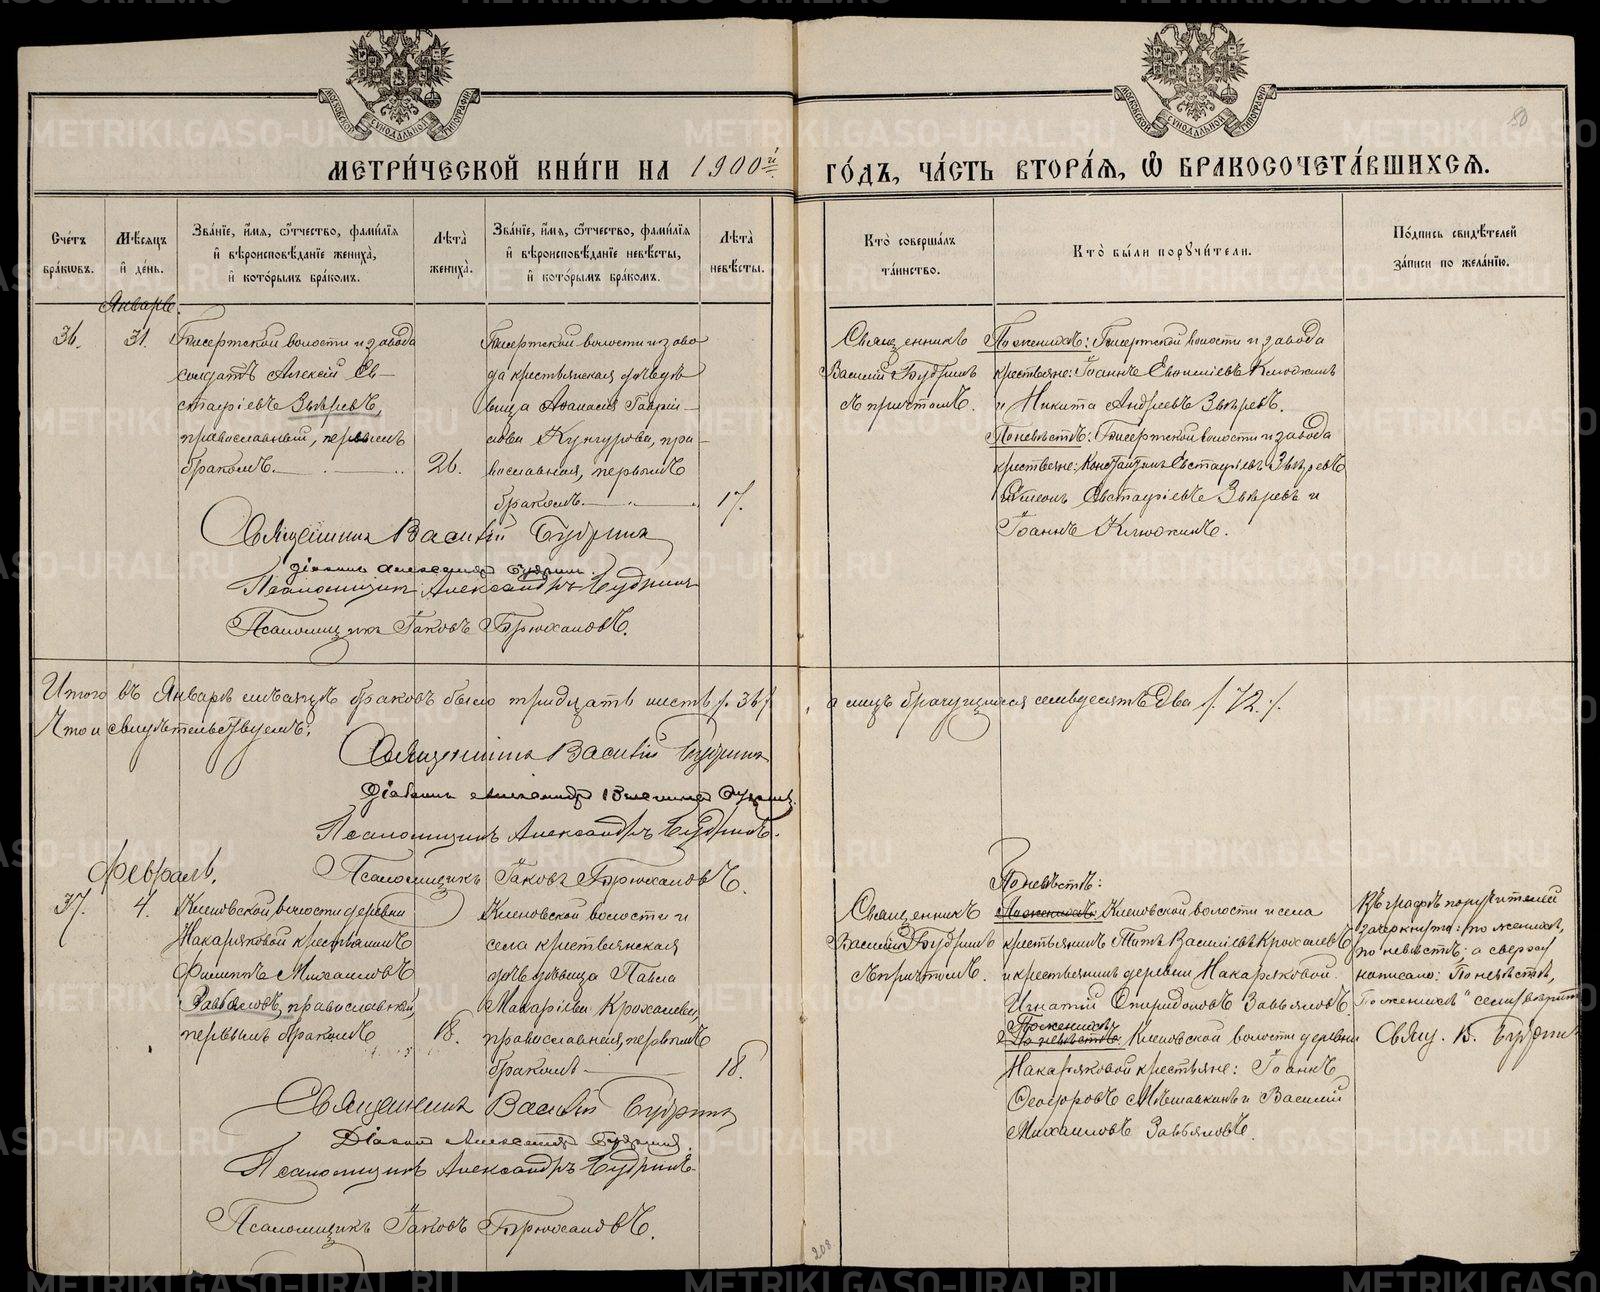 МОСКОВСКОЙ СѴНОДАЛЬНОЙ ТИПОГРАФІИ
МОСКОВСКОЙ СѴНОДАЛЬНОЙ ТИПОГРАФІИ
50
МЕТРИ́ЧЕСКОЙ КНИ́ГИ НА 1900й ГО́ДЪ, ЧА́СТЬ ВТОРА́Ѧ, Ѽ БРАКОСОЧЕТА́ВШИХСѦ.
Сче́тъ бра́кѡвъ.
Мѣ́сяцъ и҆ де́нь.
Зва́нїе, и҆́мѧ, ѻ҆́тчество, фами́лїѧ и҆ вѣроисповѣ́данїе жениха̀, и҆ кото́рымъ бра́комъ.
Лѣ́та жениха̀.
Зва́нїе, и҆́мѧ, ѻ҆́тчество, фами́лїѧ и҆ вѣроисповѣ́данїе невѣ́сты, и҆ кото́рымъ бра́комъ.
Лѣ́та невѣ́сты.
Кто̀ соверша́лъ та́инство.
Кто̀ бы́ли поручи́тели.
По́дпись свидѣ́телей за́писи по жела́нїю.
Январь.
36.
31.
Бисертской волости и завода
солдатъ Алексій Ев-
стафіевъ Звѣревъ,
православный, первымъ
бракомъ.
26.
Бисертской волости и заво
да крестьянская дѣ
вица Аѳанасія Гаврі-
лова Кунгурова, пра-
вославная, первымъ
бракомъ.
17.
Священникъ
Василій Будринъ
съ причтомъ.
По женихѣ: Бисертской волости и завода
крестьяне: Іоаннъ Клюжинъ
и Никита Андреевъ Звѣревъ.
По невѣстѣ: Бисертской волости и завода
крестьяне: Константинъ Евстафіевъ Звѣревъ
Симеонъ Евстафіевъ Звѣревъ и
Іоаннъ Клюжинъ.
Священникъ Василій Будринъ
Діаконъ Александръ Будрин
Псаломщикъ Александръ Будринъ
Псаломщикъ Іаковъ Брюхановъ.
Итого въ Январѣ мѣсяцѣ браковъ было тридцать шесть /. 36 /. а лицъ брачущихся семьдесятъ два /. 72 ./.
Что и свидѣтельствуемъ:
Священникъ Василій Будринъ
Діаконъ Александръ Будринъ.
Псаломщикъ Александръ Будринъ.
Псаломщикъ Іаковъ Брюхановъ.
Февраль.
37.
4.
Кленовской волости деревни
Накаряковой крестьянинъ
Филиппъ Михаиловъ
Завьяловъ, православный,
первымъ бракомъ
18.
Кленовской волости и
села крестьянская
дѣвица Павла
Макаріева Крохалева,
православная, первымъ
бракомъ
18.
Священникъ
Василій Будринъ
съ причтомъ.
По невѣстѣ:
По женихѣ: Кленовской волости и села
крестьянинъ Титъ Василіевъ Крохалевъ
и крестьянинъ деревни Накаряковой
Игнатій Спиридоновъ Завьяловъ.
По женихѣ
По невѣстѣ: Кленовской волости деревни
Накаряковой крестьяне: Іоаннъ
Ѳеодоровъ Мѣшавкинъ и Василій
Михаиловъ Завьяловъ.
Въ графѣ поручителей
зачеркнуто: по женихѣ,
по невѣстѣ; а сверху
написано: По невѣстѣ,
По женихѣ"
Свящ. В. Будринъ
Священникъ Василій Будринъ
Діаконъ Александръ Будринъ.
Псаломщикъ Александръ Будринъ
Псаломщикъ Іаковъ Брюхановъ.
208
METRIKI.GASO-URAL.RU